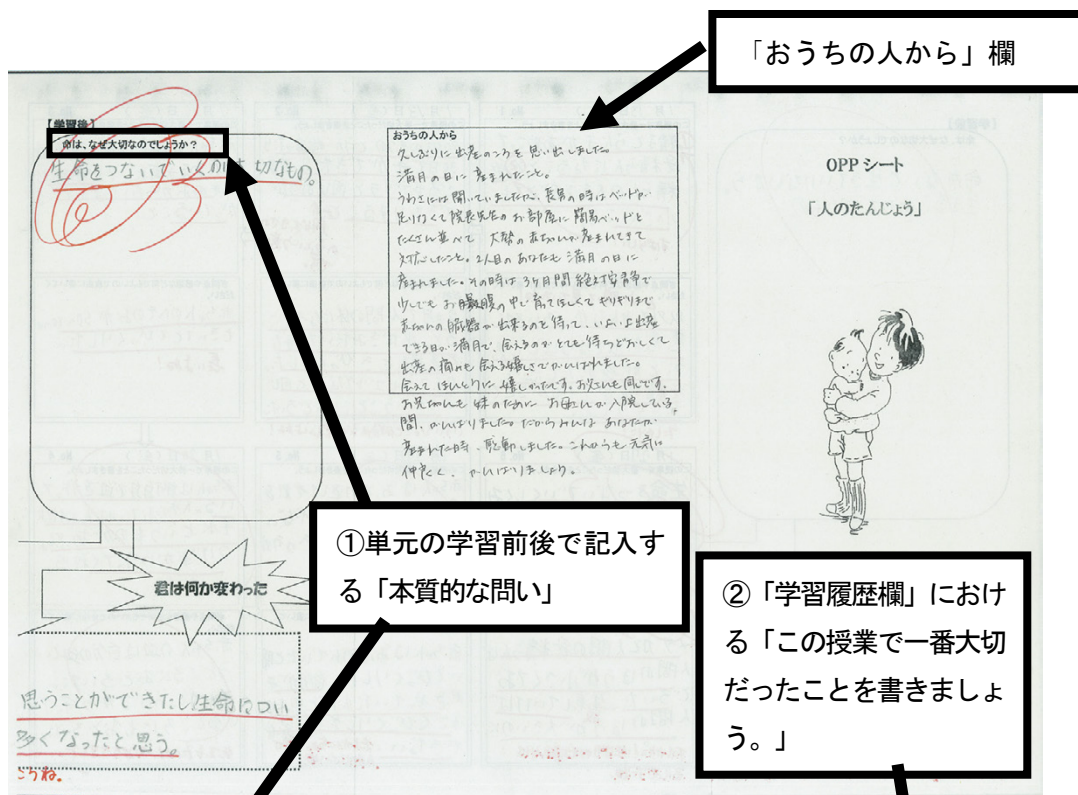 「おうちの人から」欄
【学習後】
命は、なぜ大切なのでしょうか?
生命をつないでいくのは大切なもの。
おうちの人から
久しぶりに出産のころを思い出しました。
満月の日に産まれたこと。
うわさには聞いていましたが、長男の時はベッドが
足りなくて院長先生のお部屋に簡易ベッドを
たくさん並べて大勢の赤ちゃんが産まれてきて
対応したこと。2人目のあなたも満月の日に
産まれました。その時は3ヶ月間絶対安静で
少しでもお腹の中で育てほしくてギリギリまで
赤ちゃんの臓器が出来るのを待って、いよいよ出産
できる日が満月で、会えるのがとても待ちどおしくて
出産の痛みも会える嬉しさでがんばれました。
会えてほんとうに嬉しかったです。お父さんも同じです。
お兄ちゃんも妹のためにお母さんが入院している
間、がんばりました。だからみんなあなたが
産まれた時、感動しました。これからも元気に
仲良く、がんばりましょう。
OPPシート
「人のたんじょう」
①単元の学習前後で記入す
る「本質的な問い」
君は何か変わった
思うことができたし生命につい
多くなったと思う。
こうね。
②「学習履歴欄」におけ
る「この授業で一番大切
だったことを書きましょ
う。」